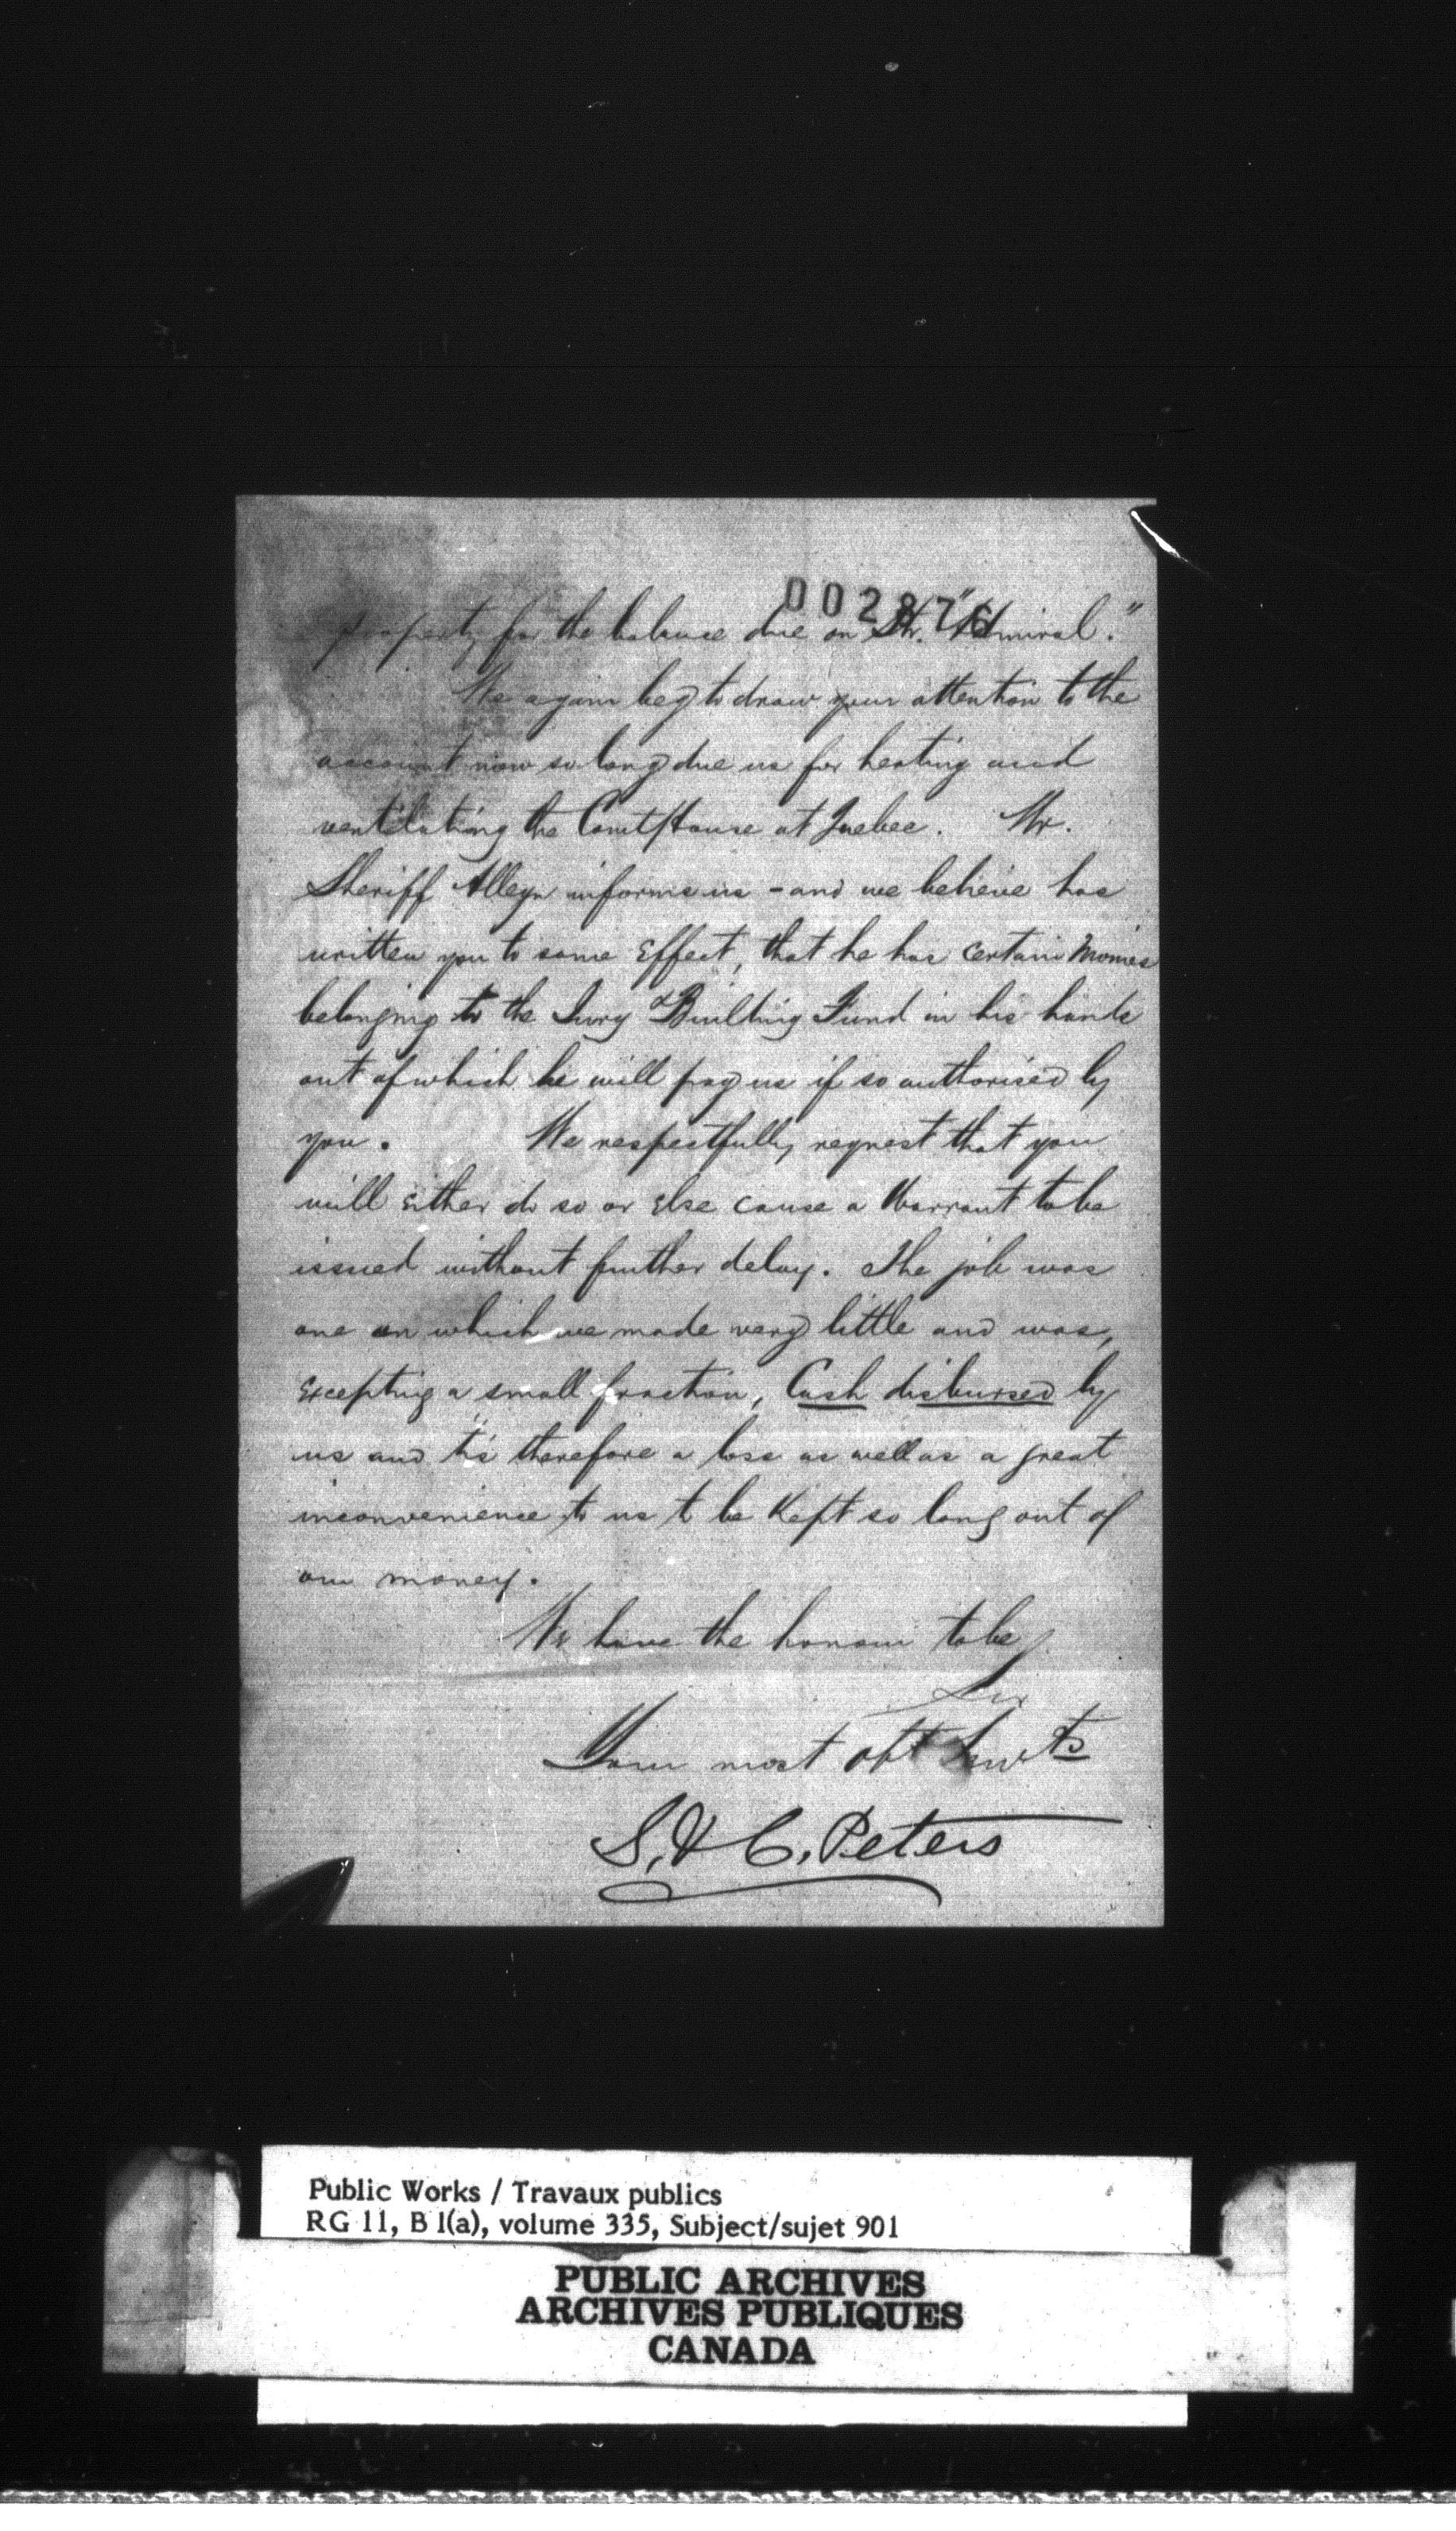 002876
property for the balance due on Str. "Admiral."
We again beg to draw your attention to the
account now so long due us for heating and
ventilating the Court House at Quebec. Mr.
Sheriff Alleyn informs us - and we believe has
written you to same Effect, that he has certain monies
belonging to the Jury & Building Fund in his hands
out of which he will pay us if so authorised by
you. We respectfully request that you
will Either do so or Else cause a Warrant to be
issued without further delay. The job was
one on which we made very little and was,
Excepting a small fraction, Cash disbursed by
us and tis therefore a loss as well as a great
inconvenience to us to be Kept so long out of
our money.
We have the honour to be
Sir
Your most obt Servts
S. & C. Peters
Public Works / Travaux publics
RG 11, B 1(a), volume 335, Subject/sujet 901
PUBLIC ARCHIVES
ARCHIVES PUBLIQUES
CANADA